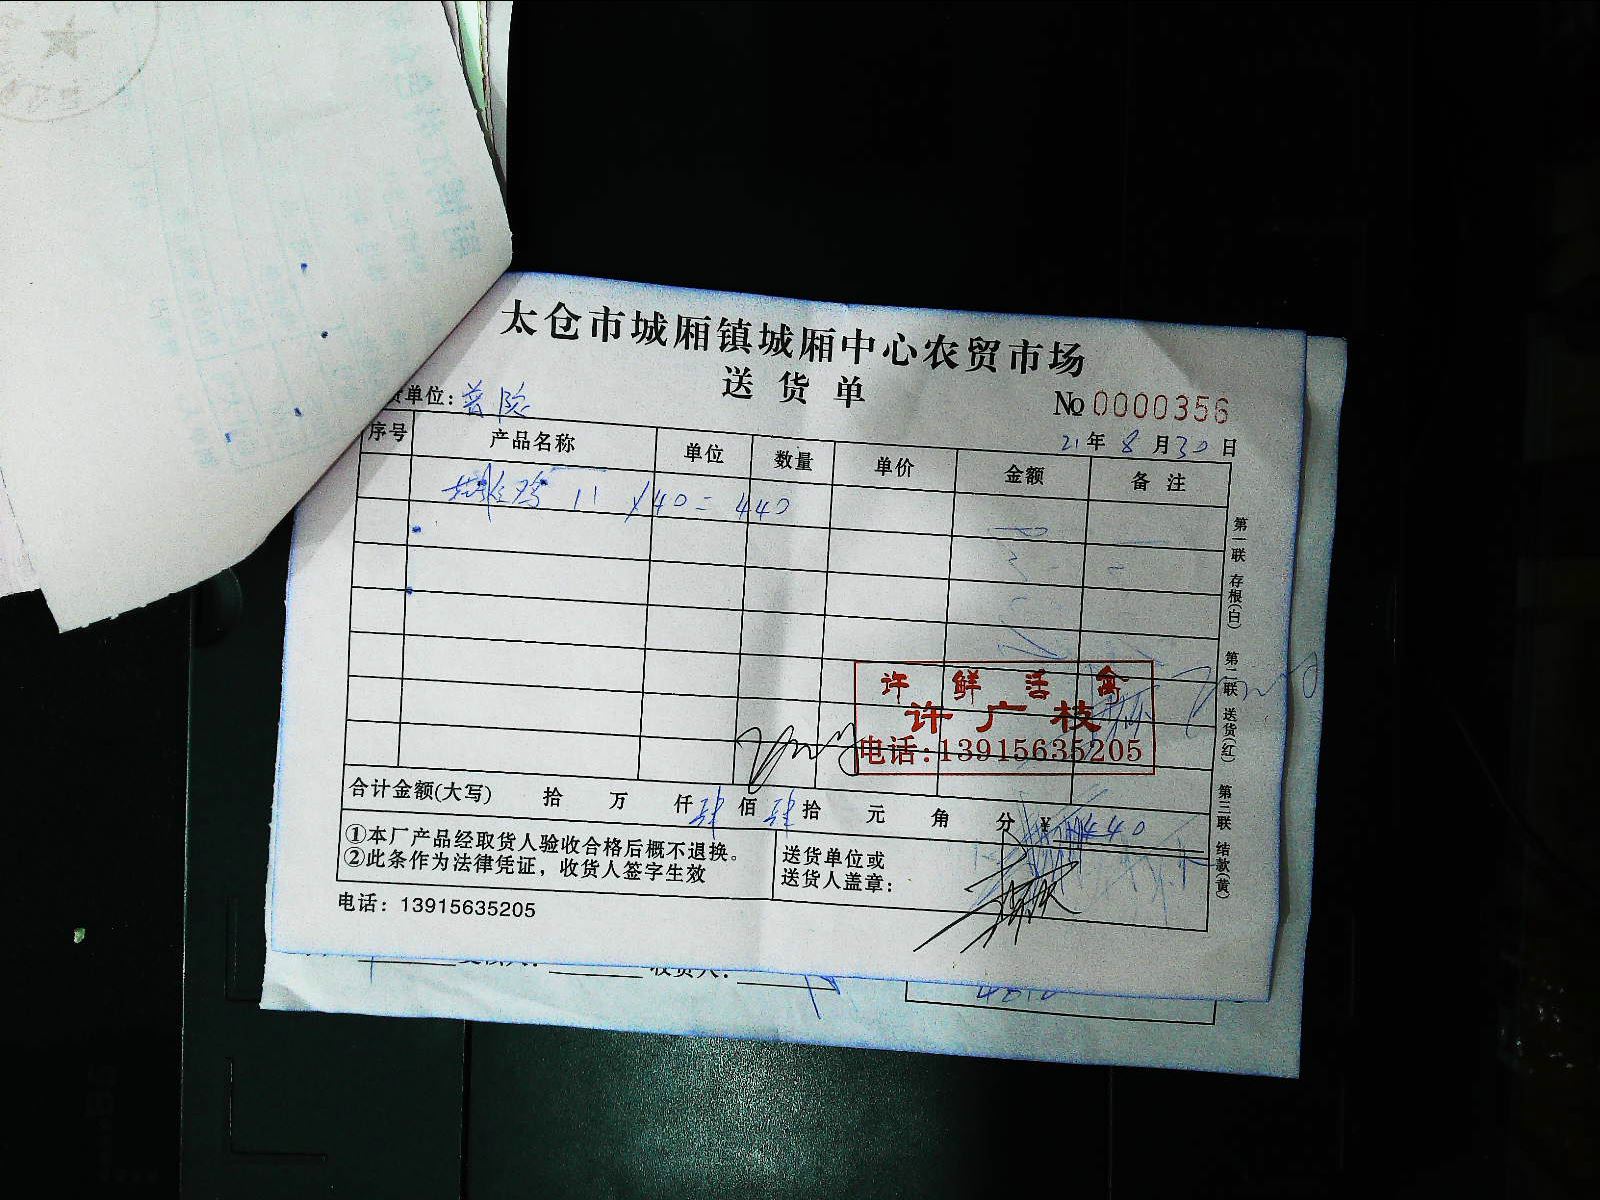 太仓市城厢镇城厢中心农贸市场
送货单
No 0000356
货单位:普院
21年8月30日
序号 产品名称 单位 数量 单价 金额 备注
鸡 11 ×40=440
第一联 存根(白) 第二联 送货(红) 第三联 结款(黄)
许鲜活禽
许广枝
电话:13915635205
合计金额(大写) 拾 万 仟肆佰肆拾 元 角 分 ¥440
①本厂产品经取货人验收合格后概不退换。
②此条作为法律凭证,收货人签字生效
送货单位或
送货人盖章:
电话:13915635205
收货人: